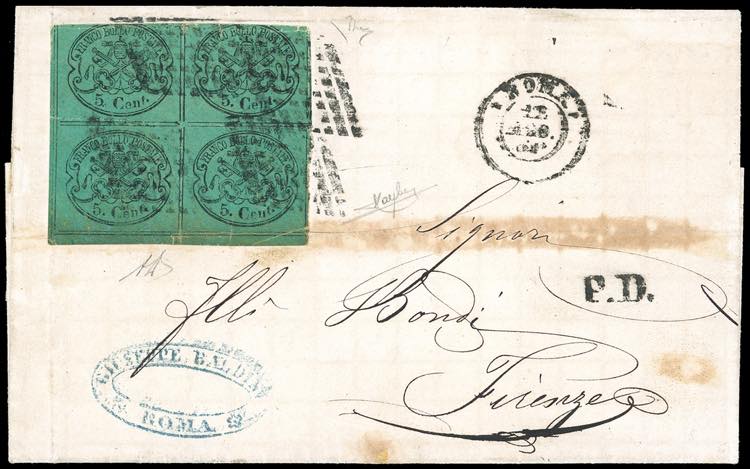 FRANCO BOLLO POSTALE
5 Cent.
FRANCO BOLLO POSTALE
5 Cent.
FRANCO BOLLO POSTALE
5 Cent.
FRANCO BOLLO POSTALE
5 Cent.
ROMA
Signori
P.D.
Flli Bondi
Firenze
GIUSEPPE BALDINI
ROMA